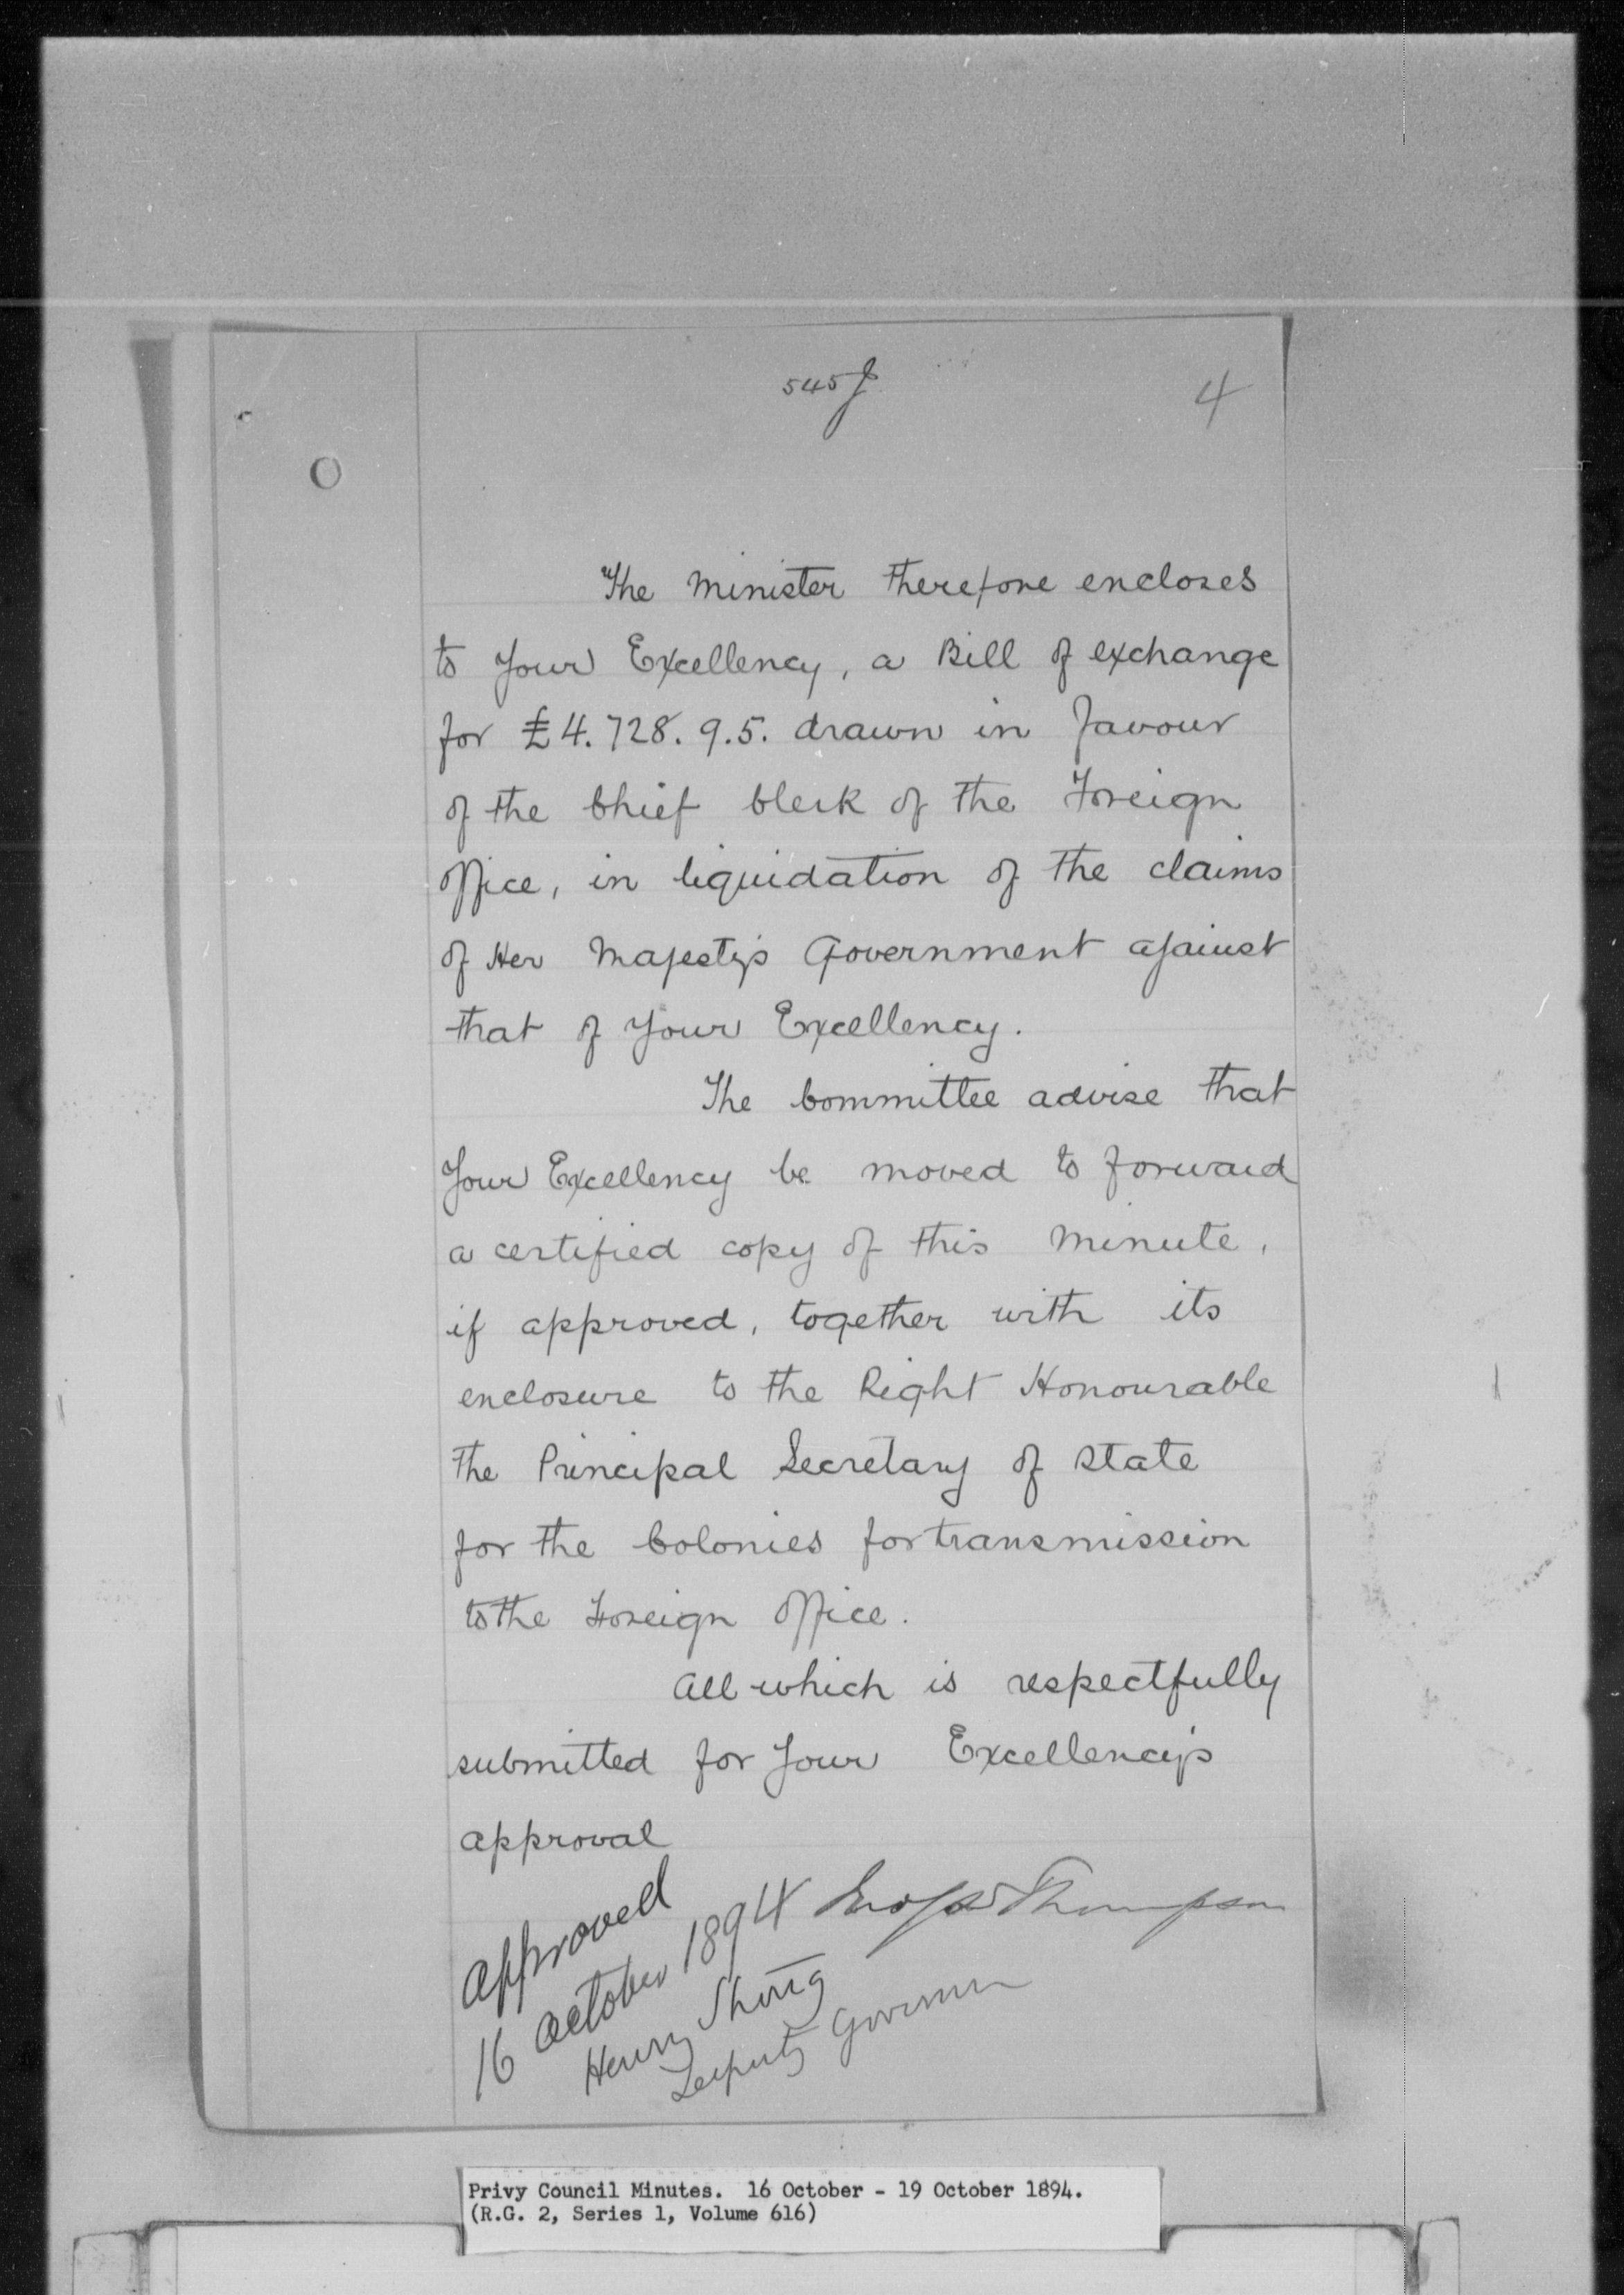 545 J
4
The Minister therefore encloses
to Your Excellency, a Bill of exchange
for £4.728.9.5. drawn in favour
of the Chief Clerk of the Foreign
Office, in liquidation of the claims
of Her Majesty's Government against
that of Your Excellency.
The Committee advise that
Your Excellency be moved to forward
a certified copy of this Minute,
if approved, together with its
enclosure to the Right Honourable
the Principal Secretary of State
for the Colonies for transmission
to the Foreign Office.
All which is respectfully
submitted for Your Excellency's
approval
Thompson
Approved
16 October 1894
Henry Strong
Deputy Governor
Privy Council Minutes. 16 October - 19 October 1894.
(R.G. 2, Series 1, Volume 616)